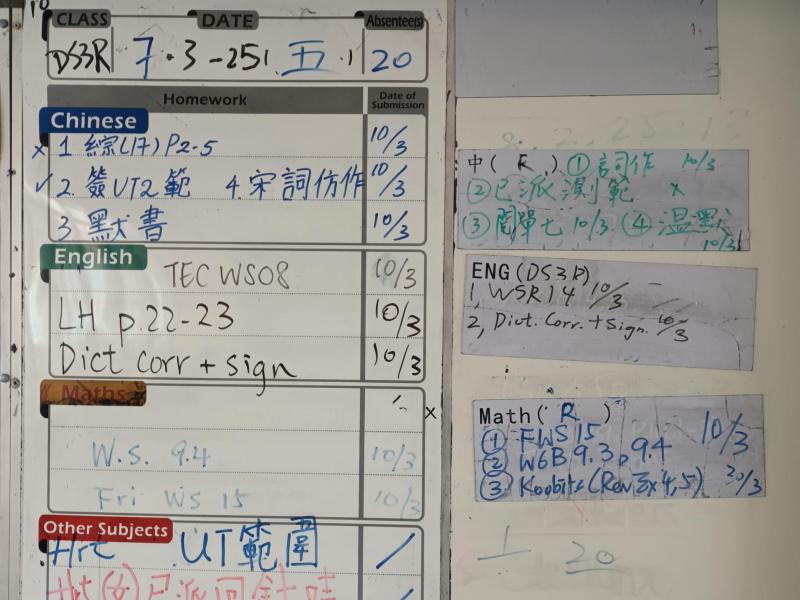 CLASS DATE Absentee(s)
DS3R 7.3-25(五) 20
Homework Date of Submission
Chinese
x 1 綜(17) P2-5 10/3
✓ 2. 簽UT2範 4. 宋詞仿作 10/3
3 默書 10/3
English
TEC WS08 10/3
LH p.22-23 10/3
Dict Corr + sign 10/3
Maths
x
W.S. 9.4 10/3
Fri WS 15 10/3
Other Subjects
Hrt UT範圍 /
中( R ) ① 詞作 10/3
② 已派測範 x
③ 閱單七 10/3 ④ 溫默
10/3
ENG(DS3R)
1, WSR14 10/3
2, Dict. Corr. + Sign. 10/3
Math( R )
① FWS 15
② W6B 9.3, 9.4 10/3
③ Koobits (Rev Ex 4, 5) 20/3
1 20